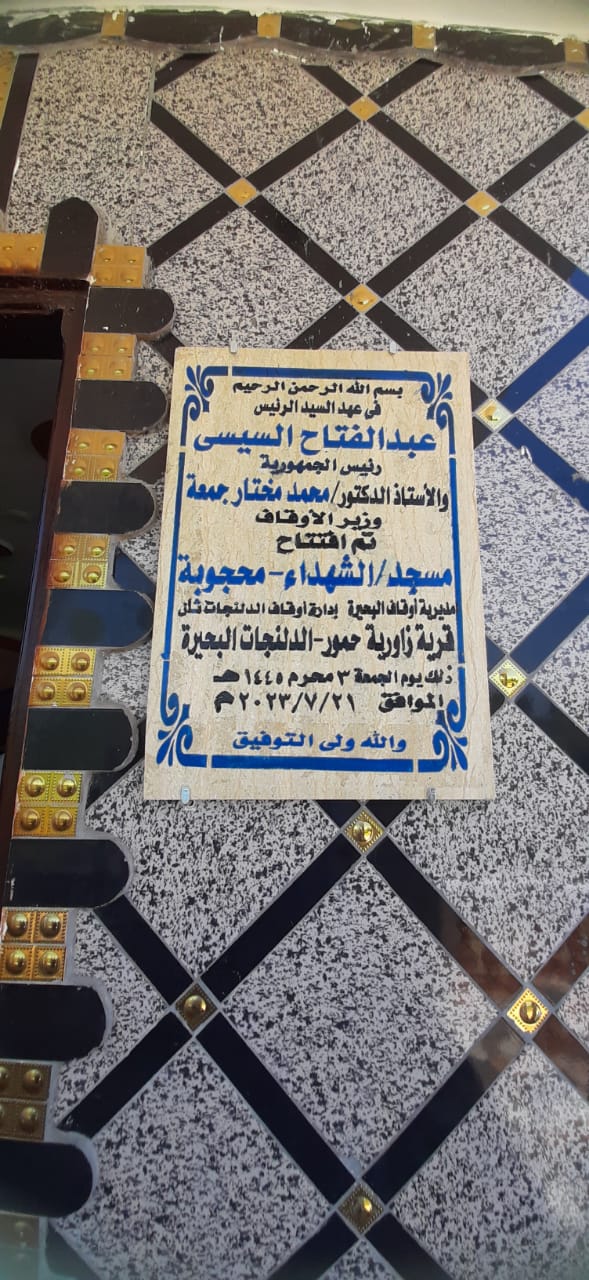 بسم الله الرحمن الرحيم
فى عهد السيد الرئيس
عبدالفتاح السيسى
رئيس الجمهورية
والأستاذ الدكتور/محمد مختار جمعة
وزير الأوقاف
تم افتتاح
مسجد/الشهداء-محجوبة
مديرية أوقاف البحيرة إدارة أوقاف الدلنجات شأن
قرية زاورية حمور-الدلنجات البحيرة
ذلك يوم الجمعة ٣ محرم ١٤٤٥ هـ
الموافق ٢٠٢٣/٧/٢١ م
والله ولى التوفيق